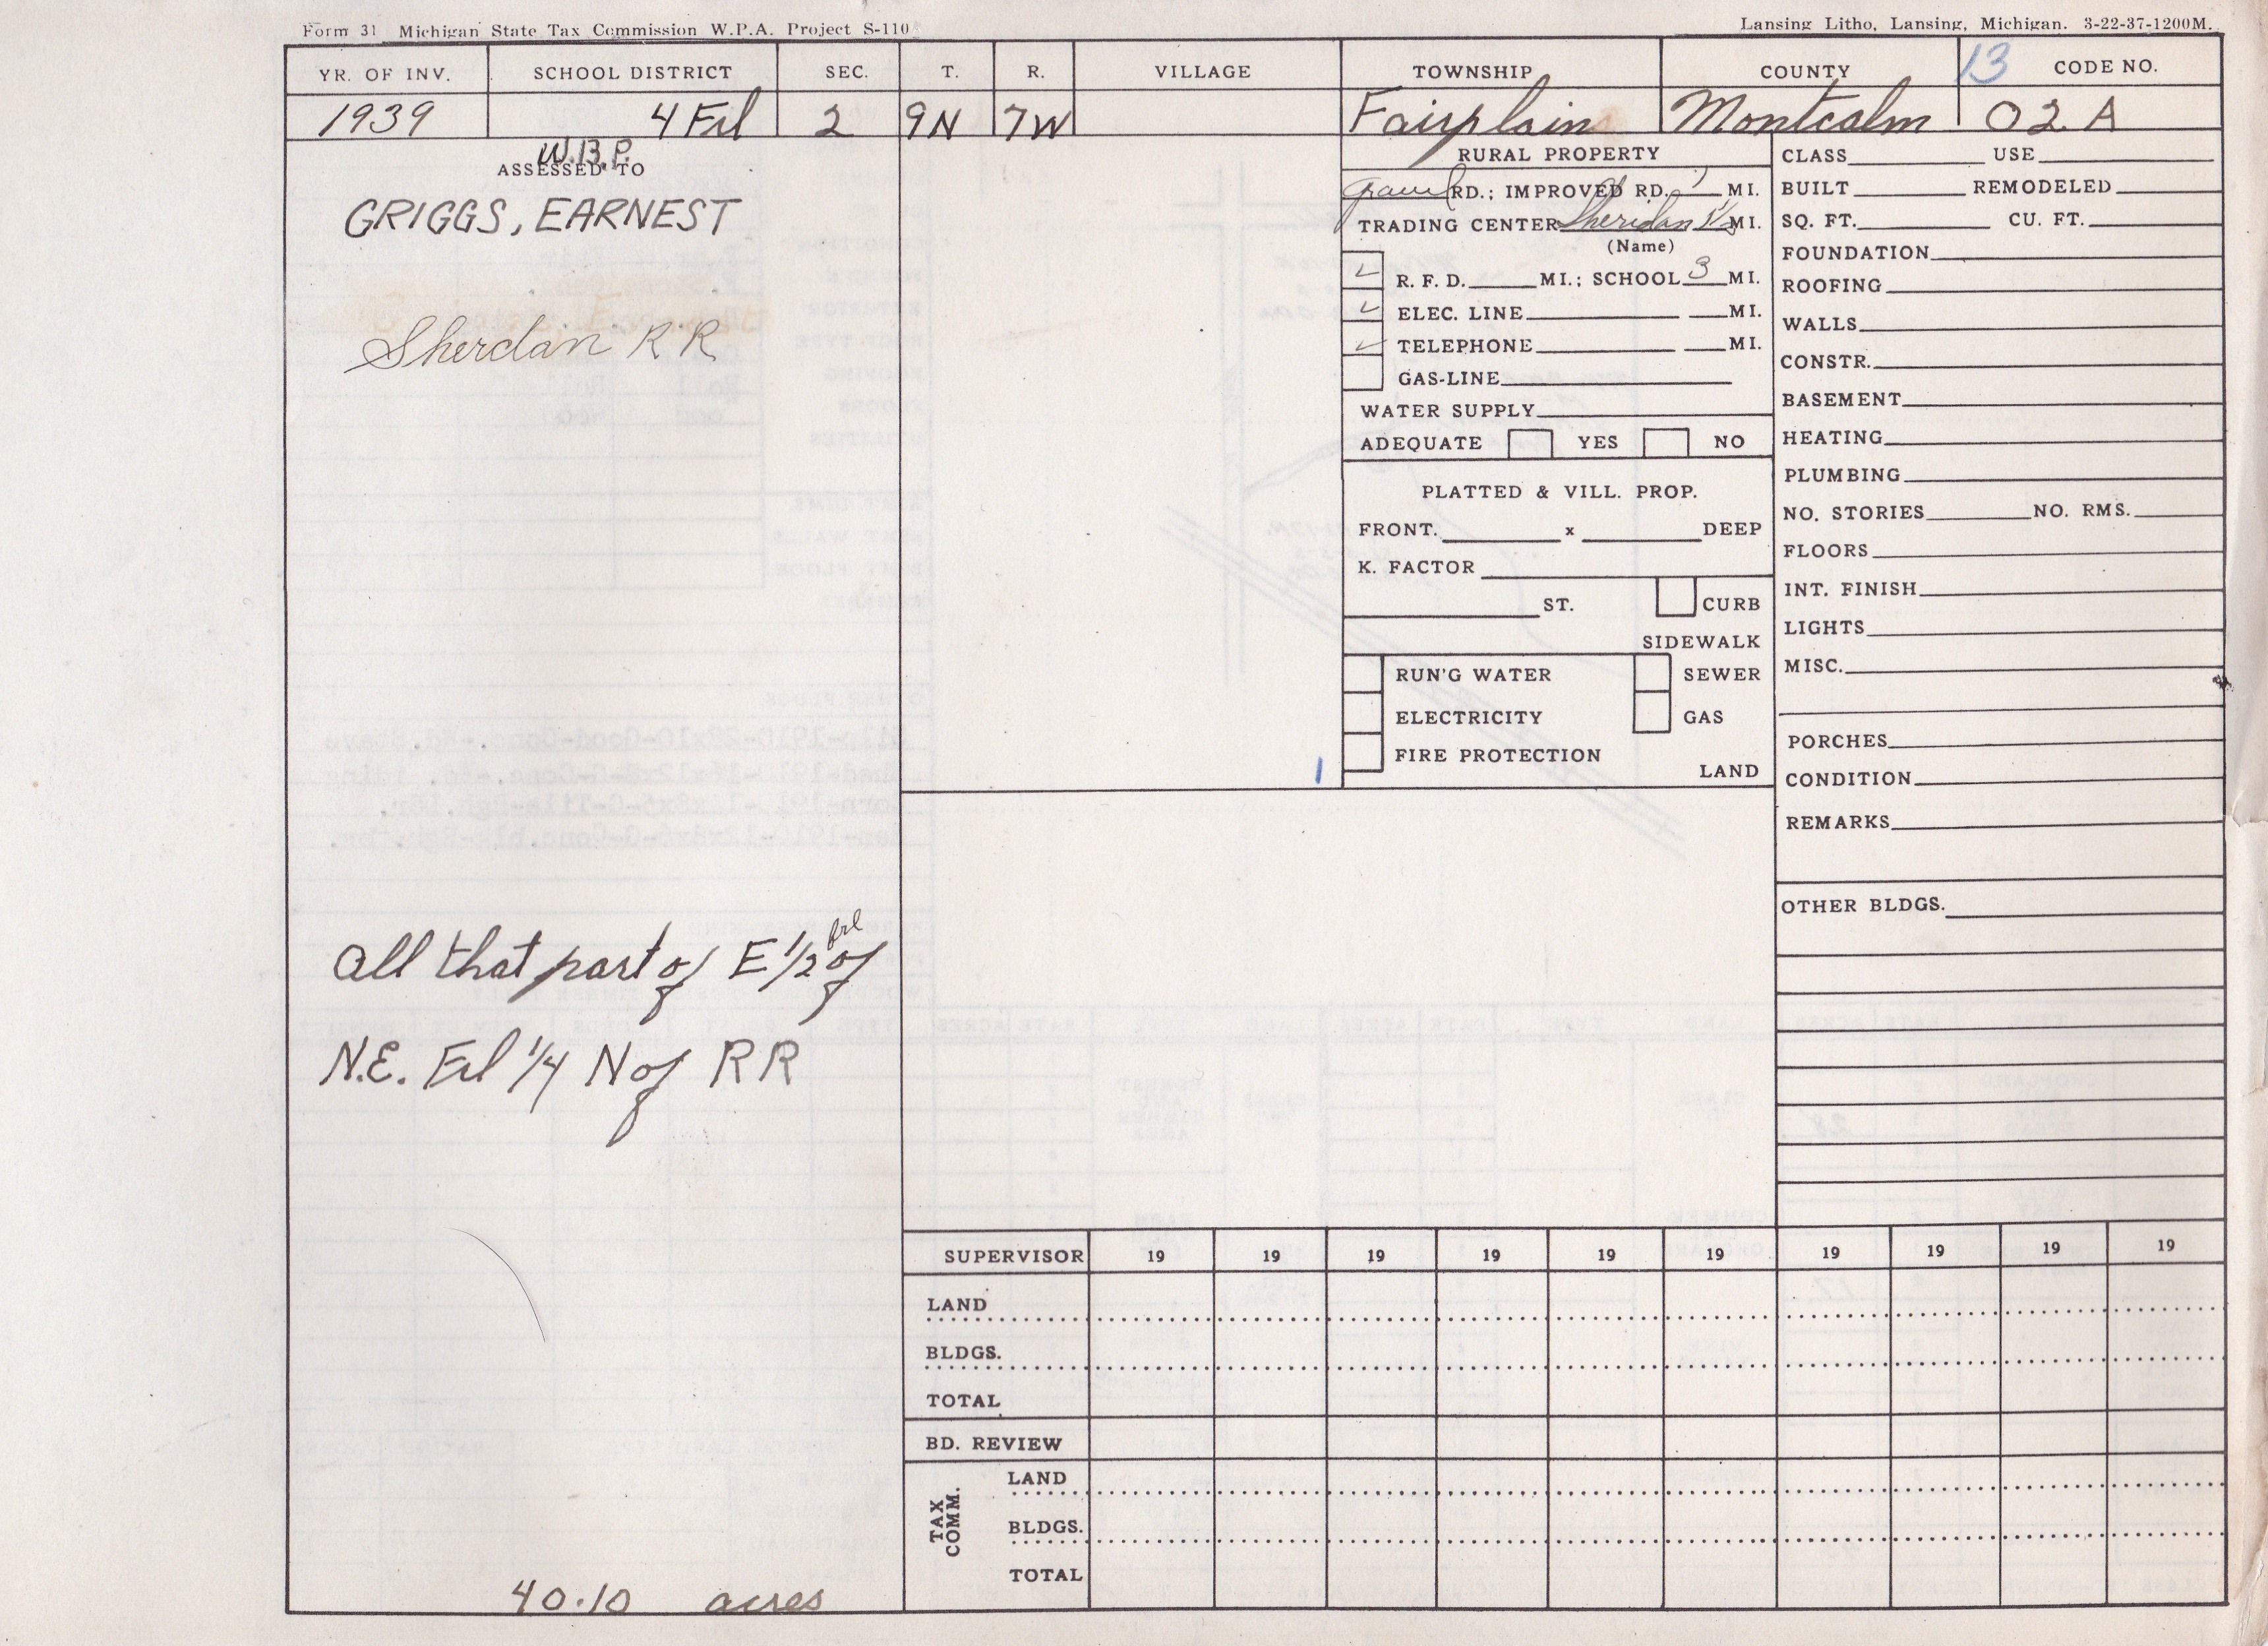 Form 31 Michigan State Tax Commission W.P.A. Project S-110
Lansing Litho, Lansing, Michigan. 3-22-37-1200M.
YR. OF INV. SCHOOL DISTRICT SEC. T. R. VILLAGE TOWNSHIP COUNTY 13 CODE NO.
1939 4 Frl 2 9N 7W Fairplain Montcalm 02 A
W.B.P.
ASSESSED TO
GRIGGS, EARNEST
Sherdan R R
All that part of E 1/2 frl of
N.E. Frl 1/4 N of RR
40.10 acres
1
RURAL PROPERTY
gravel RD.; IMPROVED RD. MI.
TRADING CENTER Sheridan MI.
(Name)
R. F. D. MI.; SCHOOL 3 MI.
ELEC. LINE MI.
TELEPHONE MI.
GAS-LINE
WATER SUPPLY
ADEQUATE YES NO
PLATTED & VILL. PROP.
FRONT. x DEEP
K. FACTOR
ST. CURB
SIDEWALK
RUN'G WATER SEWER
ELECTRICITY GAS
FIRE PROTECTION
LAND
CLASS USE
BUILT REMODELED
SQ. FT. CU. FT.
FOUNDATION
ROOFING
WALLS
CONSTR.
BASEMENT
HEATING
PLUMBING
NO. STORIES NO. RMS.
FLOORS
INT. FINISH
LIGHTS
MISC.
PORCHES
CONDITION
REMARKS
OTHER BLDGS.
SUPERVISOR 19 19 19 19 19 19 19 19 19 19
LAND
BLDGS.
TOTAL
BD. REVIEW
TAX COMM.
LAND
BLDGS.
TOTAL